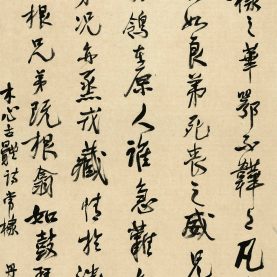 棣之華鄂不韡之凡
如良弟死丧之威兄
鴒在原人誰急難
况亦烝戎藏情於
根兄弟既根翕如鼓
木心古體詩常棣 丹